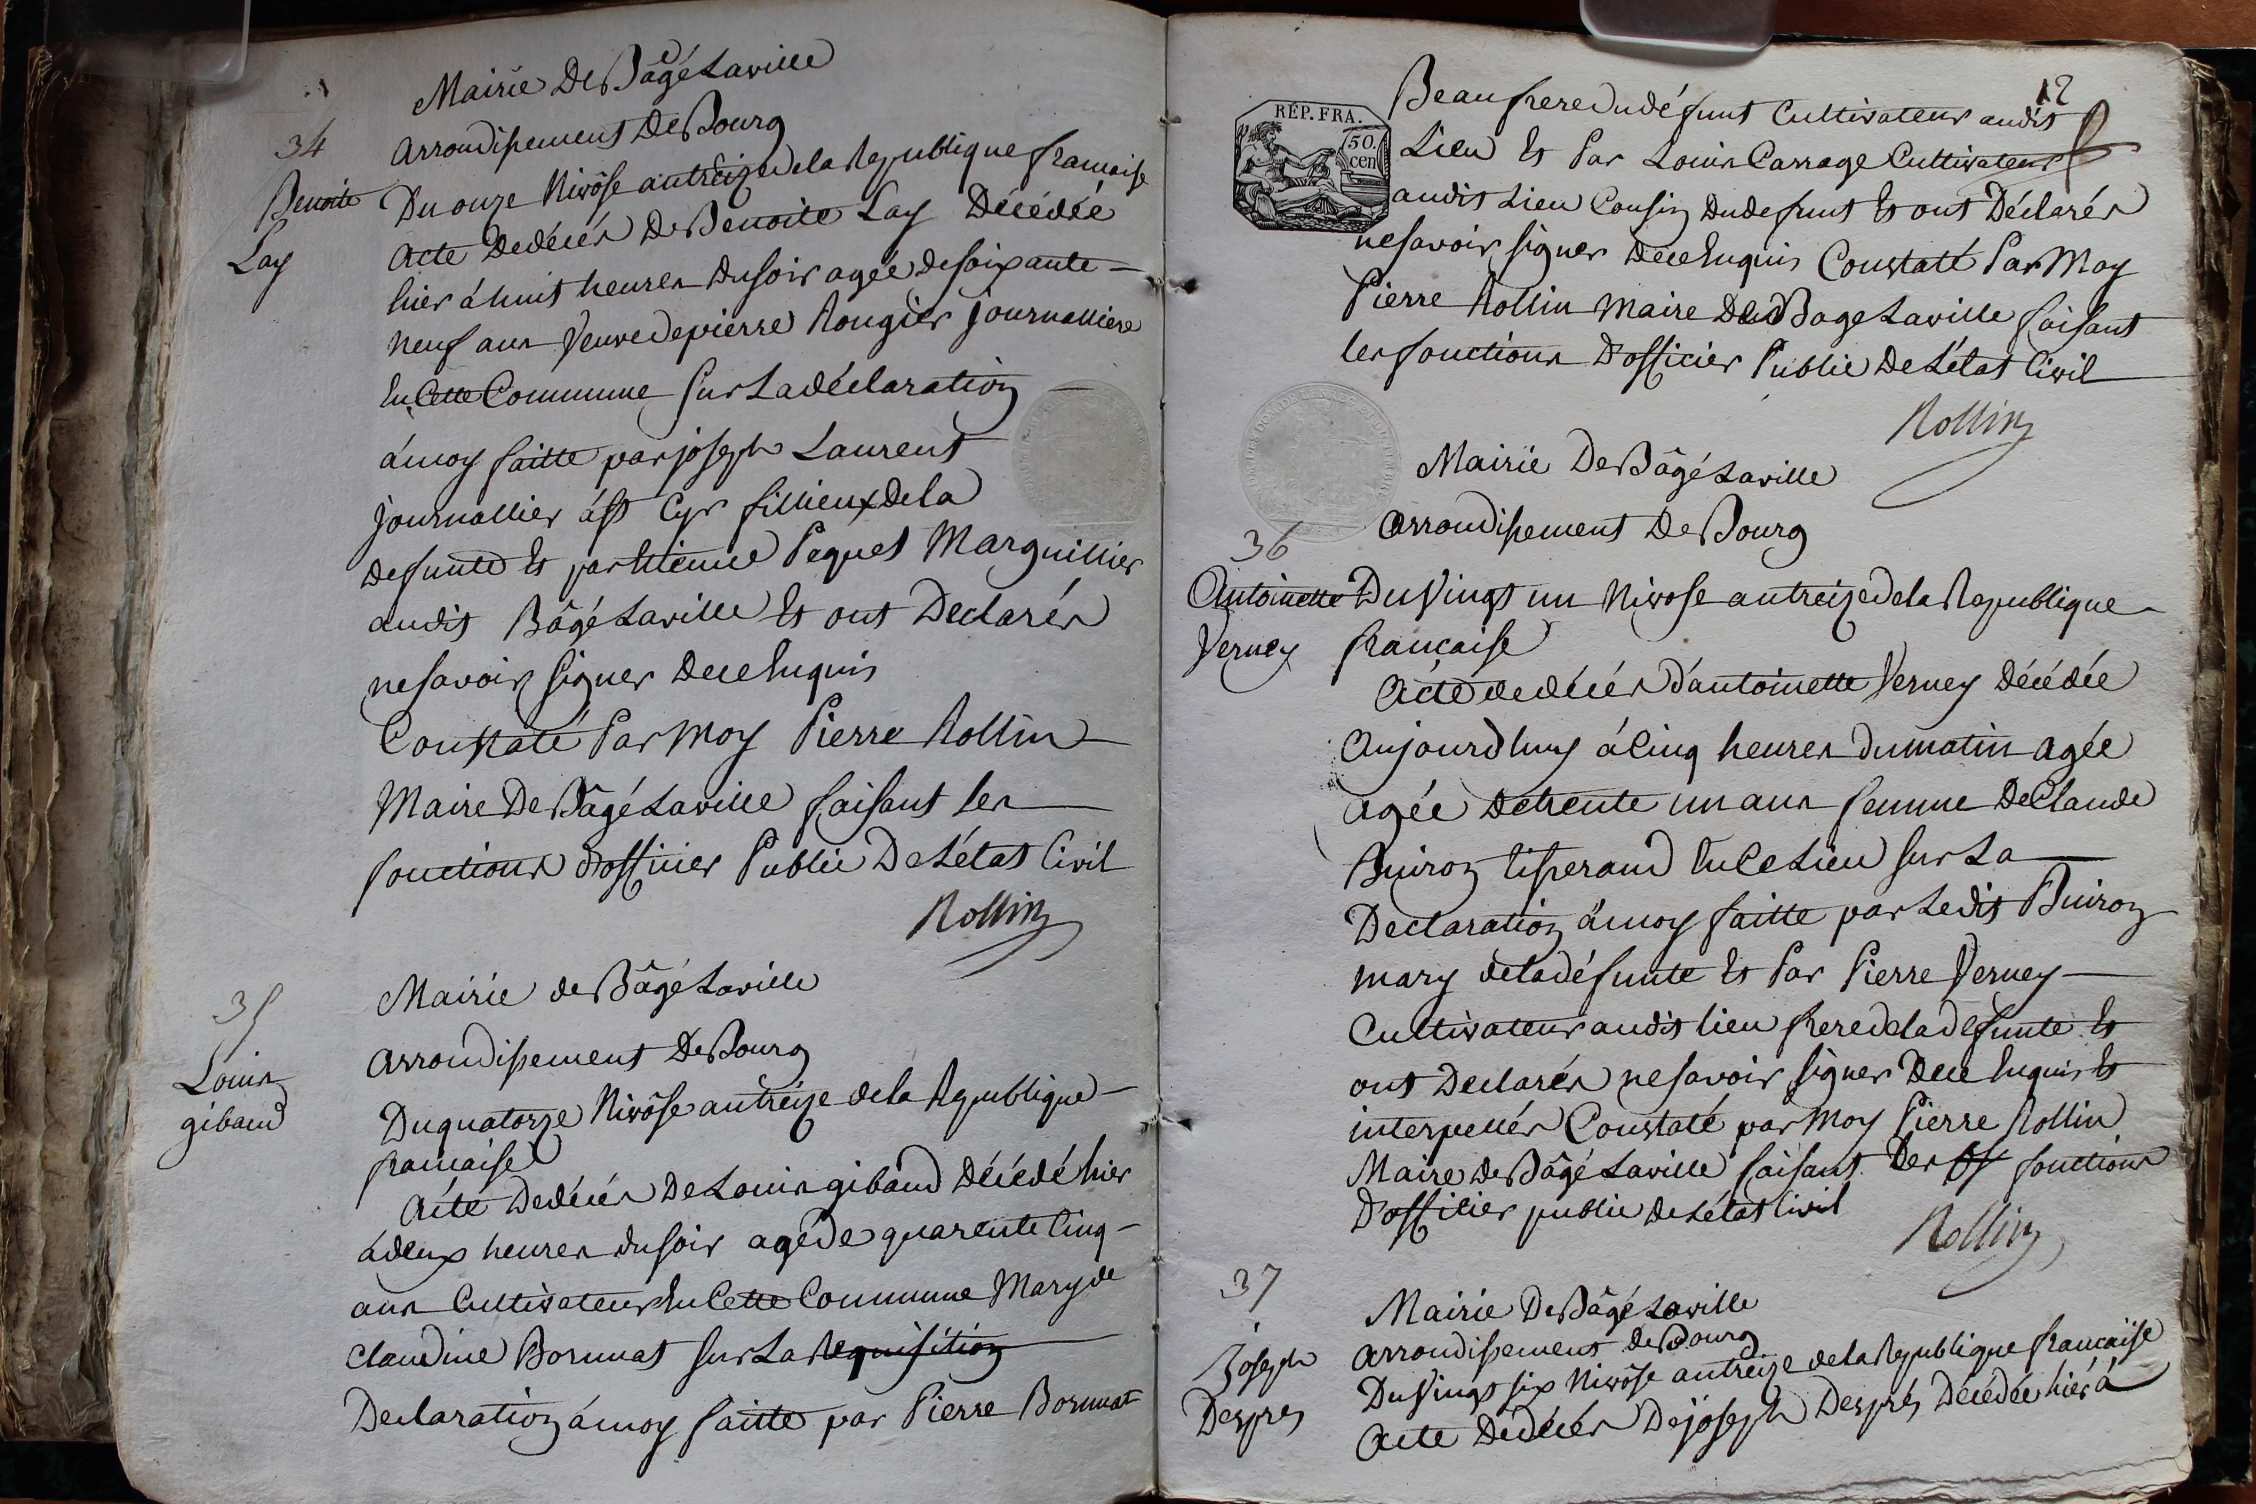 Mairie De Bâgé Laville
arrondissement De Bourg
34
Benoite
Lay
Du onze Nivôse an treize de la Republique francaise
acte De décés De Benoite Lay Décédée
hier á huit heures du soir agée de soixante
neuf ans Veuve de pierre Rougier journalliere
En Cette Commune Sur La déclaration
á moy faitte par joseph Laurent
journallier á st Cyr fillieux de la
defunte Et par Etienne Pequet Marguillier
audit Bâgé Laville Et ont Declarés
ne savoir signer De ce Enquis
Constaté Par Moy Pierre Rollin
Maire De Bâgé Laville faisant les
fonctions d'officier Public De L'état Civil
Rollin
35
Louis
gibaud
Mairie de Bâgé Laville
arrondissement De Bourg
Du quatorze Nivôse an treize de la Republique
francaise
Acte De décés De Louis gibaud Décédé hier
á deux heures du soir agé De quarente Cinq
ans Cultivateur En Cette Commune Mary de
Claudine Bornuat sur La Requisition
Declaration á moy faitte par Pierre Bornuat
12
RÉP. FRA.
50.
cen
Beaufrere du défunt Cultivateur audit
Lieu Et Par Louis Carrage Cultivateur
audit Lieu Cousin du defunt Et ont Déclarés
ne savoir signer De ce Enquis Constaté Par Moy
Pierre Rollin Maire De Bage Laville faisant
les fonctions D'officier Public De L'état Civil
Rollin
Mairie De Bâgé Laville
arrondissement De Bourg
36
Antoinette
Verney
Du Vingt un Nivose an treize de la Republique
francaise
Acte de décés d'antoinette Verney Décédée
Aujourd huy á Cinq heures du matin agée
agée De trente un ans femme De Claude
Buiron tisserand En Ce Lieu sur La
Declaration á moy faitte par Ledit Buiron
mary de la défunte Et Par Pierre Verney
Cultivateur audit lieu frere de la defunte Et
ont Declarés ne savoir signer De ce Enquis Et
interpellés Constaté par Moy Pierre Rollin
Maire De Bâgé Laville faisant Les of fonctions
D'officier public De L'état Civil
Rollin
37
joseph
Desprès
Mairie De Bâgé Laville
arrondissement de Bourg
Du Vingt six Nivôse an treize de la Republique francaise
Acte De décés De joseph Desprès Décédée hier á